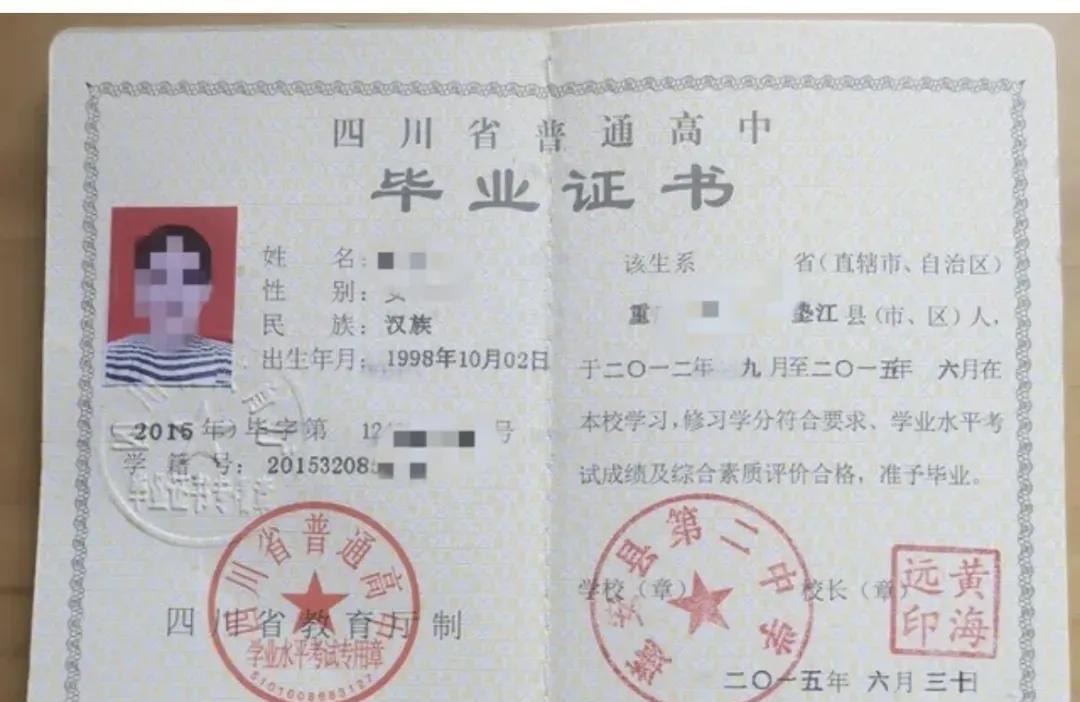 四川省普通高中
毕业证书
姓 名：
性 别：女
民 族：汉族
出生年月：1998年10月02日
2016年）毕字第 12 号
学 籍 号：201532085
四川省教育厅制
四川省普通高中
学业水平考试专用章
5101008683127
该生系 省（直辖市、自治区）
重 垫江县（市、区）人，
于二〇一二年 九月至二〇一五年 六月在
本校学习，修习学分符合要求、学业水平考
试成绩及综合素质评价合格，准予毕业。
学校（章） 校长（章）
县第二中学
黄海
远印
二〇一五年 六月三十日